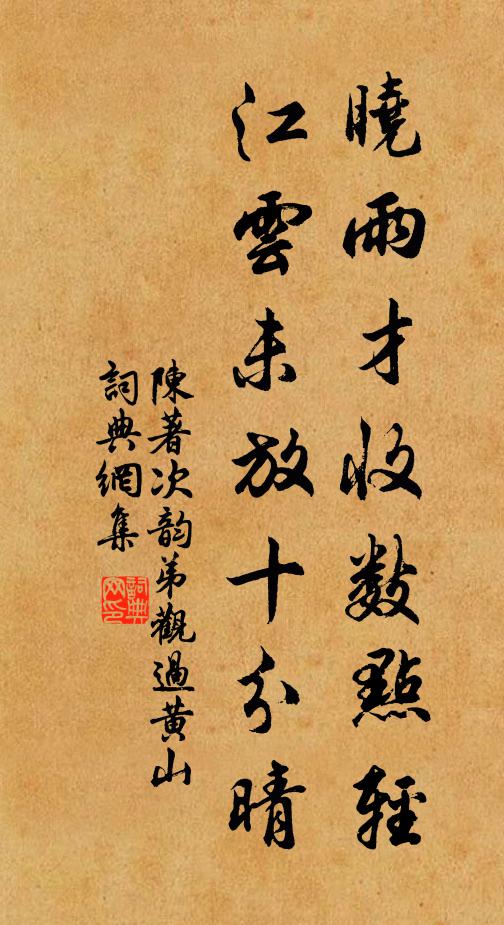 曉雨才收數點輕
江雲未放十分晴
陳著次韵弟觀過黃山
詞典網集
詞典網印